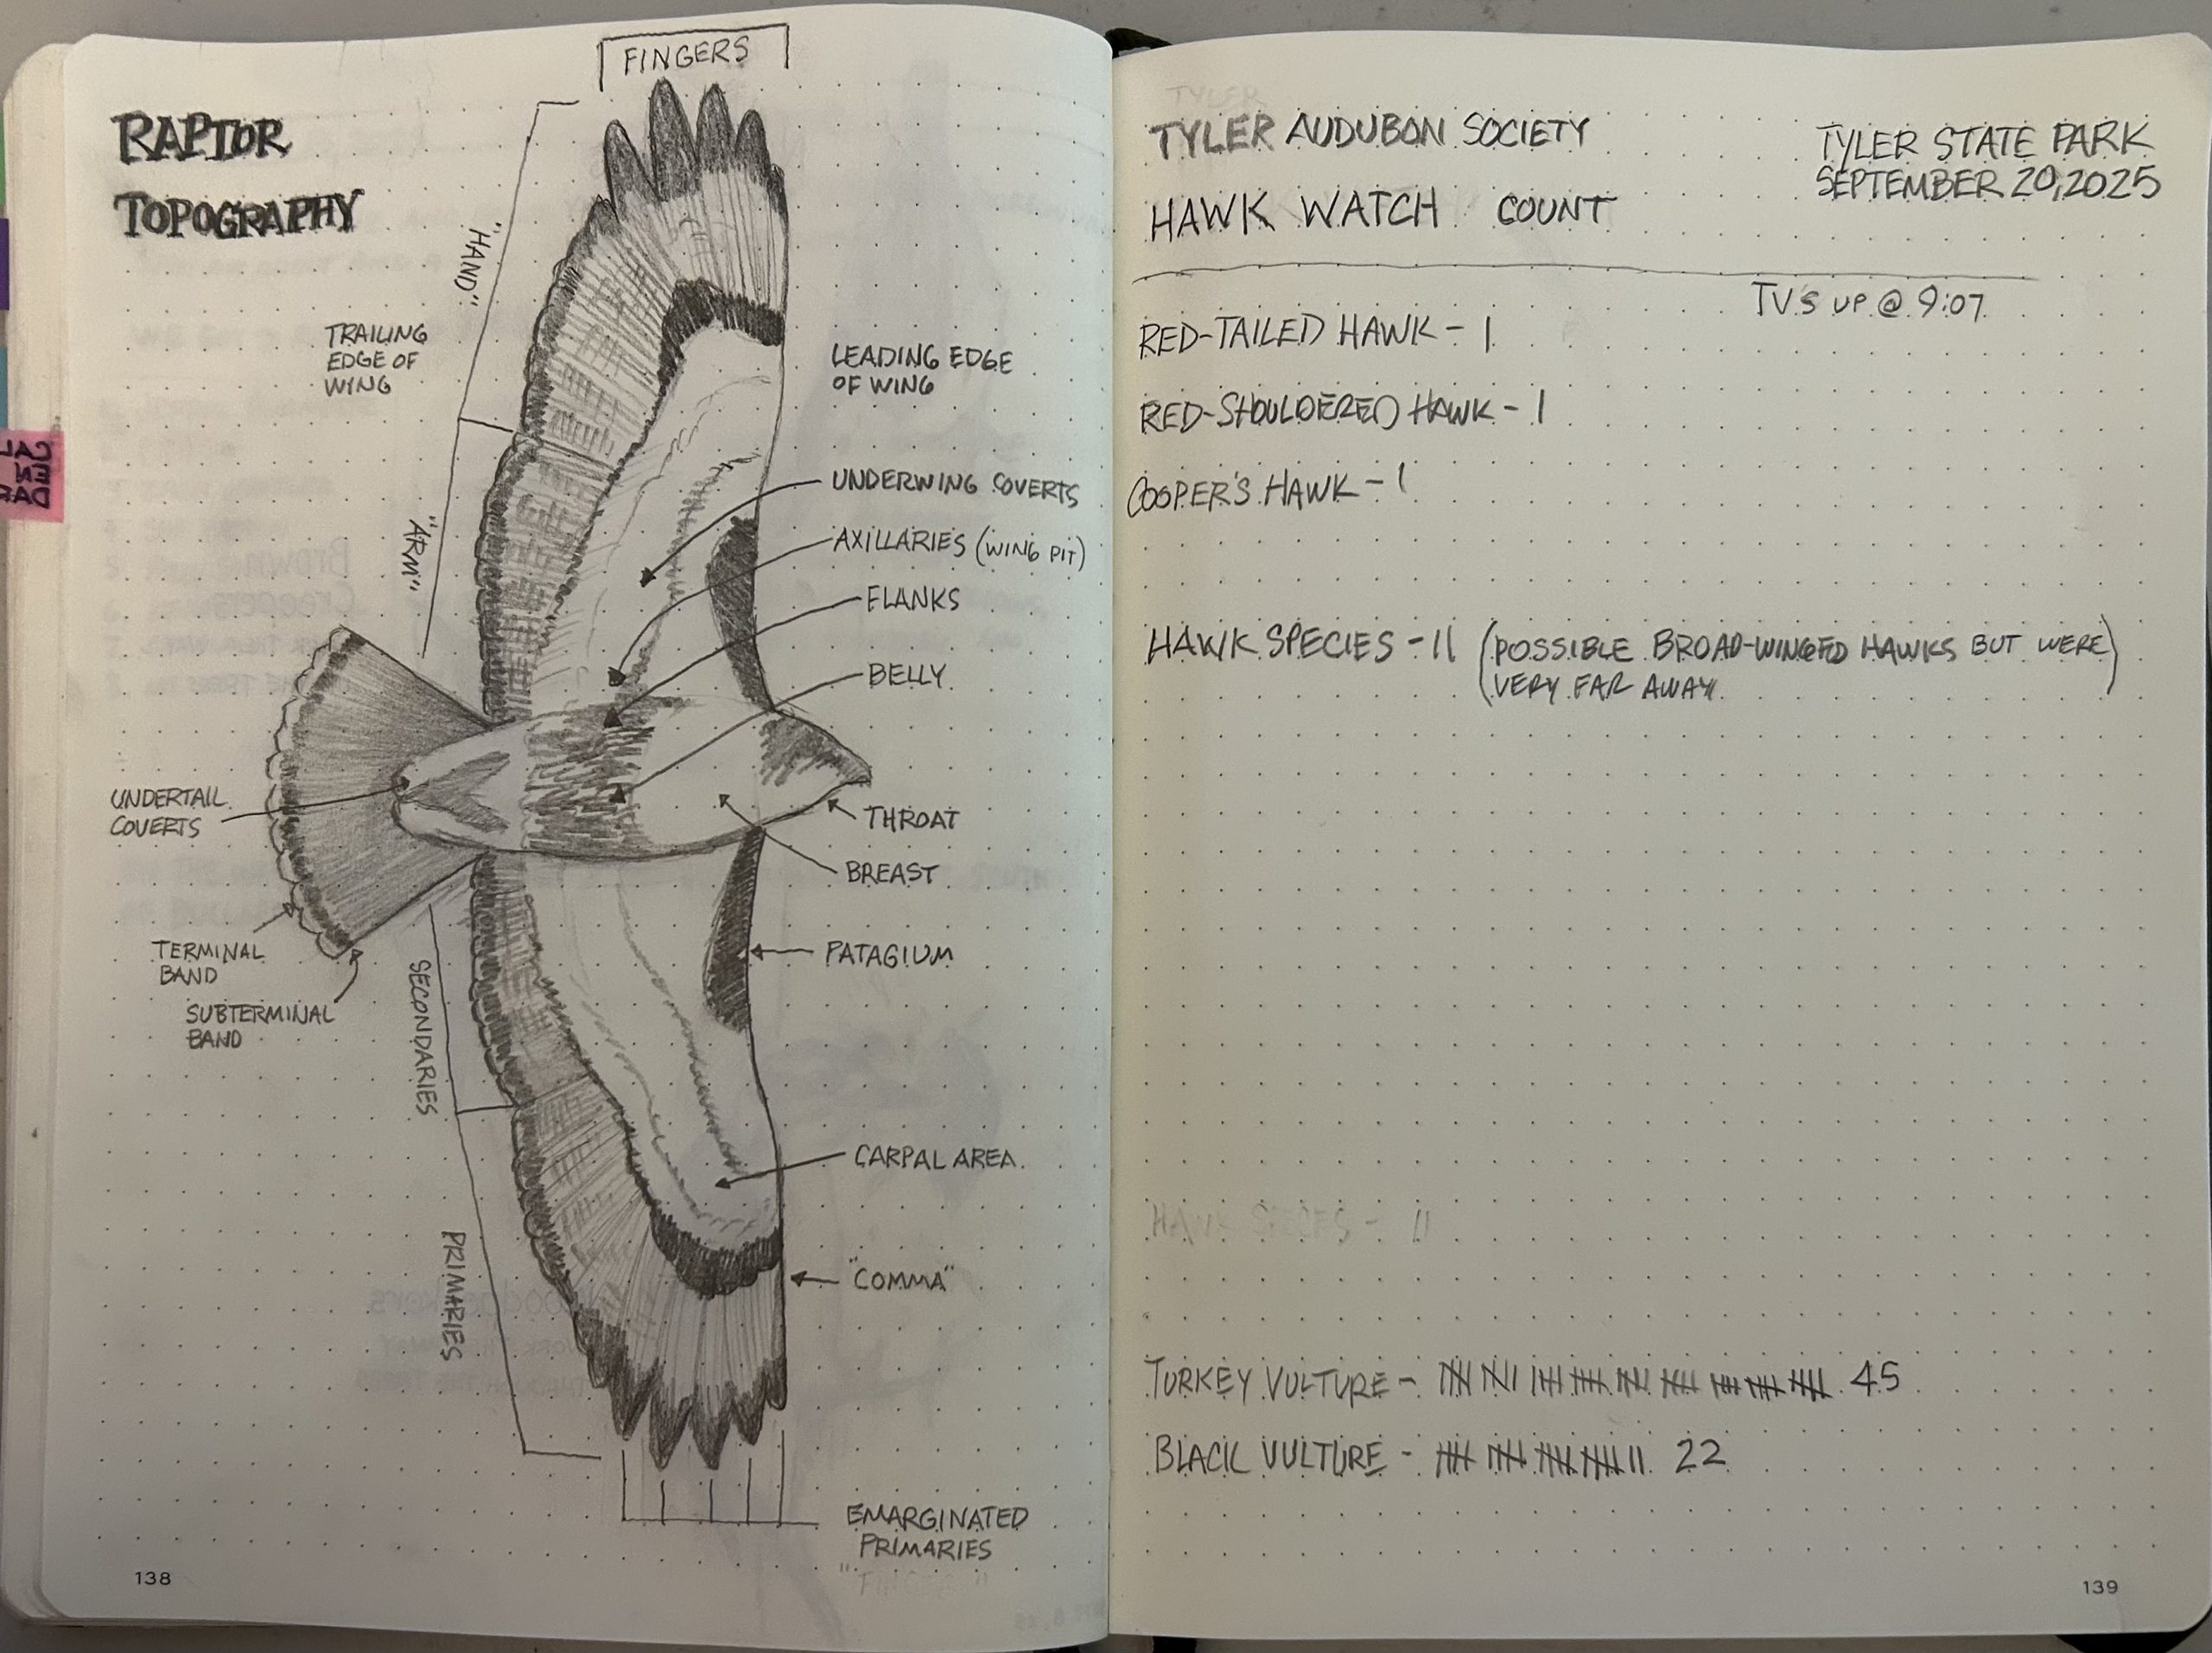 RAPTOR
TOPOGRAPHY
FINGERS
"HAND"
TRAILING
EDGE OF
WING
LEADING EDGE
OF WING
"ARM"
UNDERWING COVERTS
AXILLARIES (WING PIT)
FLANKS
BELLY
UNDERTAIL
COVERTS
THROAT
BREAST
TERMINAL
BAND
SUBTERMINAL
BAND
PATAGIUM
SECONDARIES
CARPAL AREA
PRIMARIES
"COMMA"
EMARGINATED
PRIMARIES
138
CAL
EN
DAR
TYLER
TYLER AUDUBON SOCIETY
HAWK WATCH COUNT
TYLER STATE PARK
SEPTEMBER 20, 2025
TV'S UP @ 9:07
RED-TAILED HAWK - 1
RED-SHOULDERED HAWK - 1
COOPER'S HAWK - 1
HAWK SPECIES - 11 (POSSIBLE BROAD-WINGED HAWKS BUT WERE
VERY FAR AWAY)
HAWK SPECIES - 11
TURKEY VULTURE - 45
BLACK VULTURE - 22
139